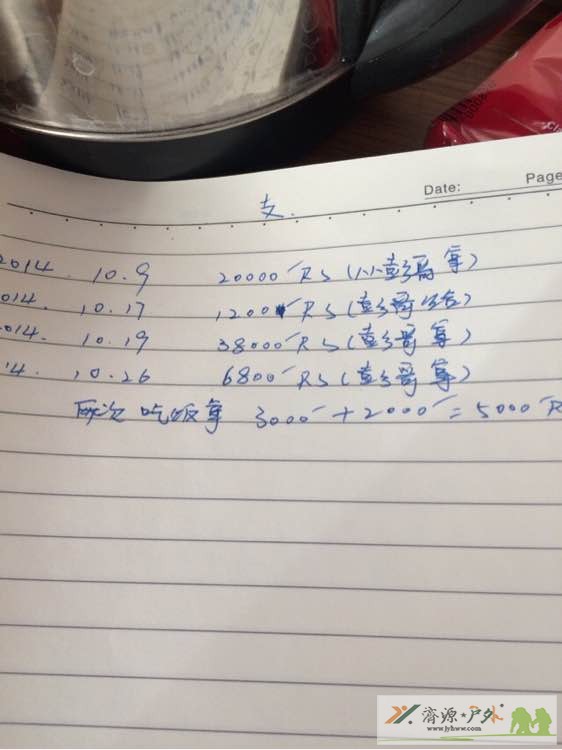 Date: Page
支.
2014. 10.9 20000 RS (小彭哥拿)
014. 10.17 1200 RS (彭哥给)
014. 10.19 38000 RS (彭哥拿)
14. 10.26 6800 RS (彭哥拿)
两次 吃饭拿 3000 + 2000 = 5000 R
济源★户外
www.jyhww.com